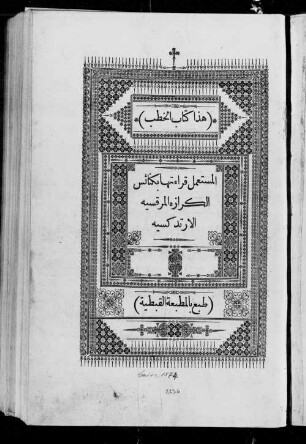 (هذا كتاب الخطب)
المستعمل قراءتها بكنائس
الكرازه المرقسيه
الارتدكسيه
(طبع بالمطبعة القبطية)
Cairo 1874